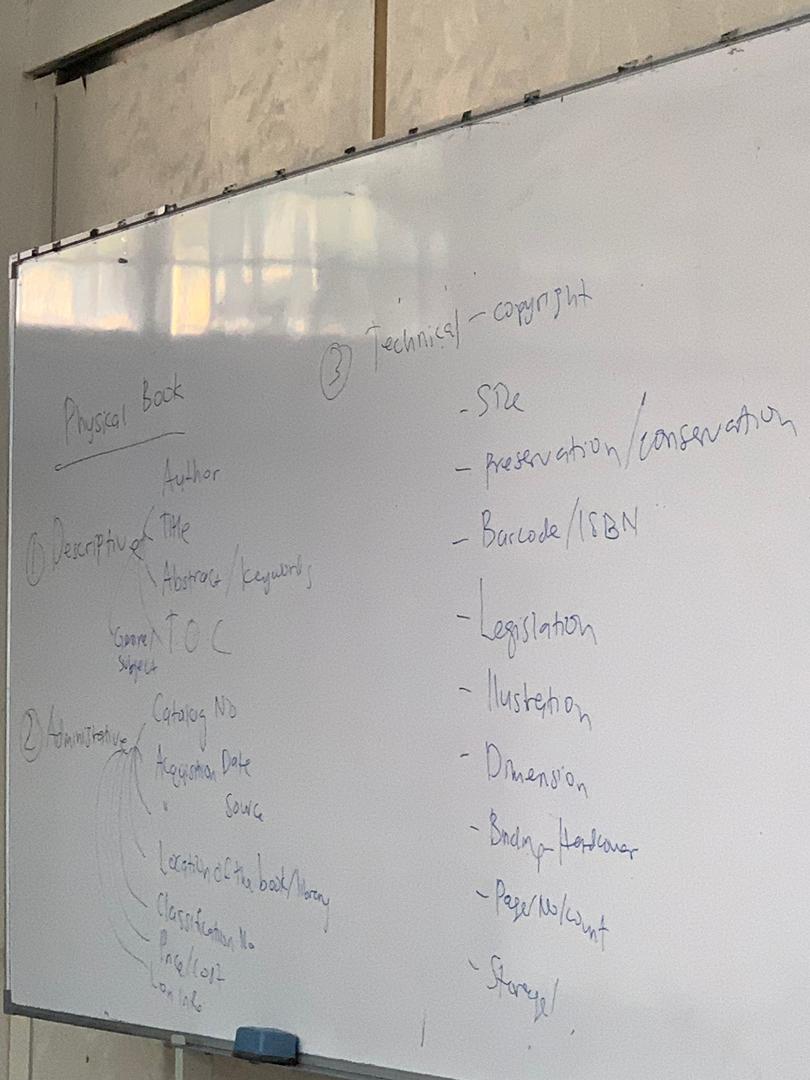 Physical Book
① Descriptive
Author
Title
Abstract/keywords
T O C
Genre/
Subject
② Administrative
Catalog No
Acqquistion Date
" Source
Location of the book/library
Classification No
Price/cost
Loan Info
③ Technical - copyright
- Size
- Preservation/conservation
- Barcode/ISBN
- Legislation
- Ilustration
- Dimension
- Binding-Hardcover
- Page/No/count
- Storage/